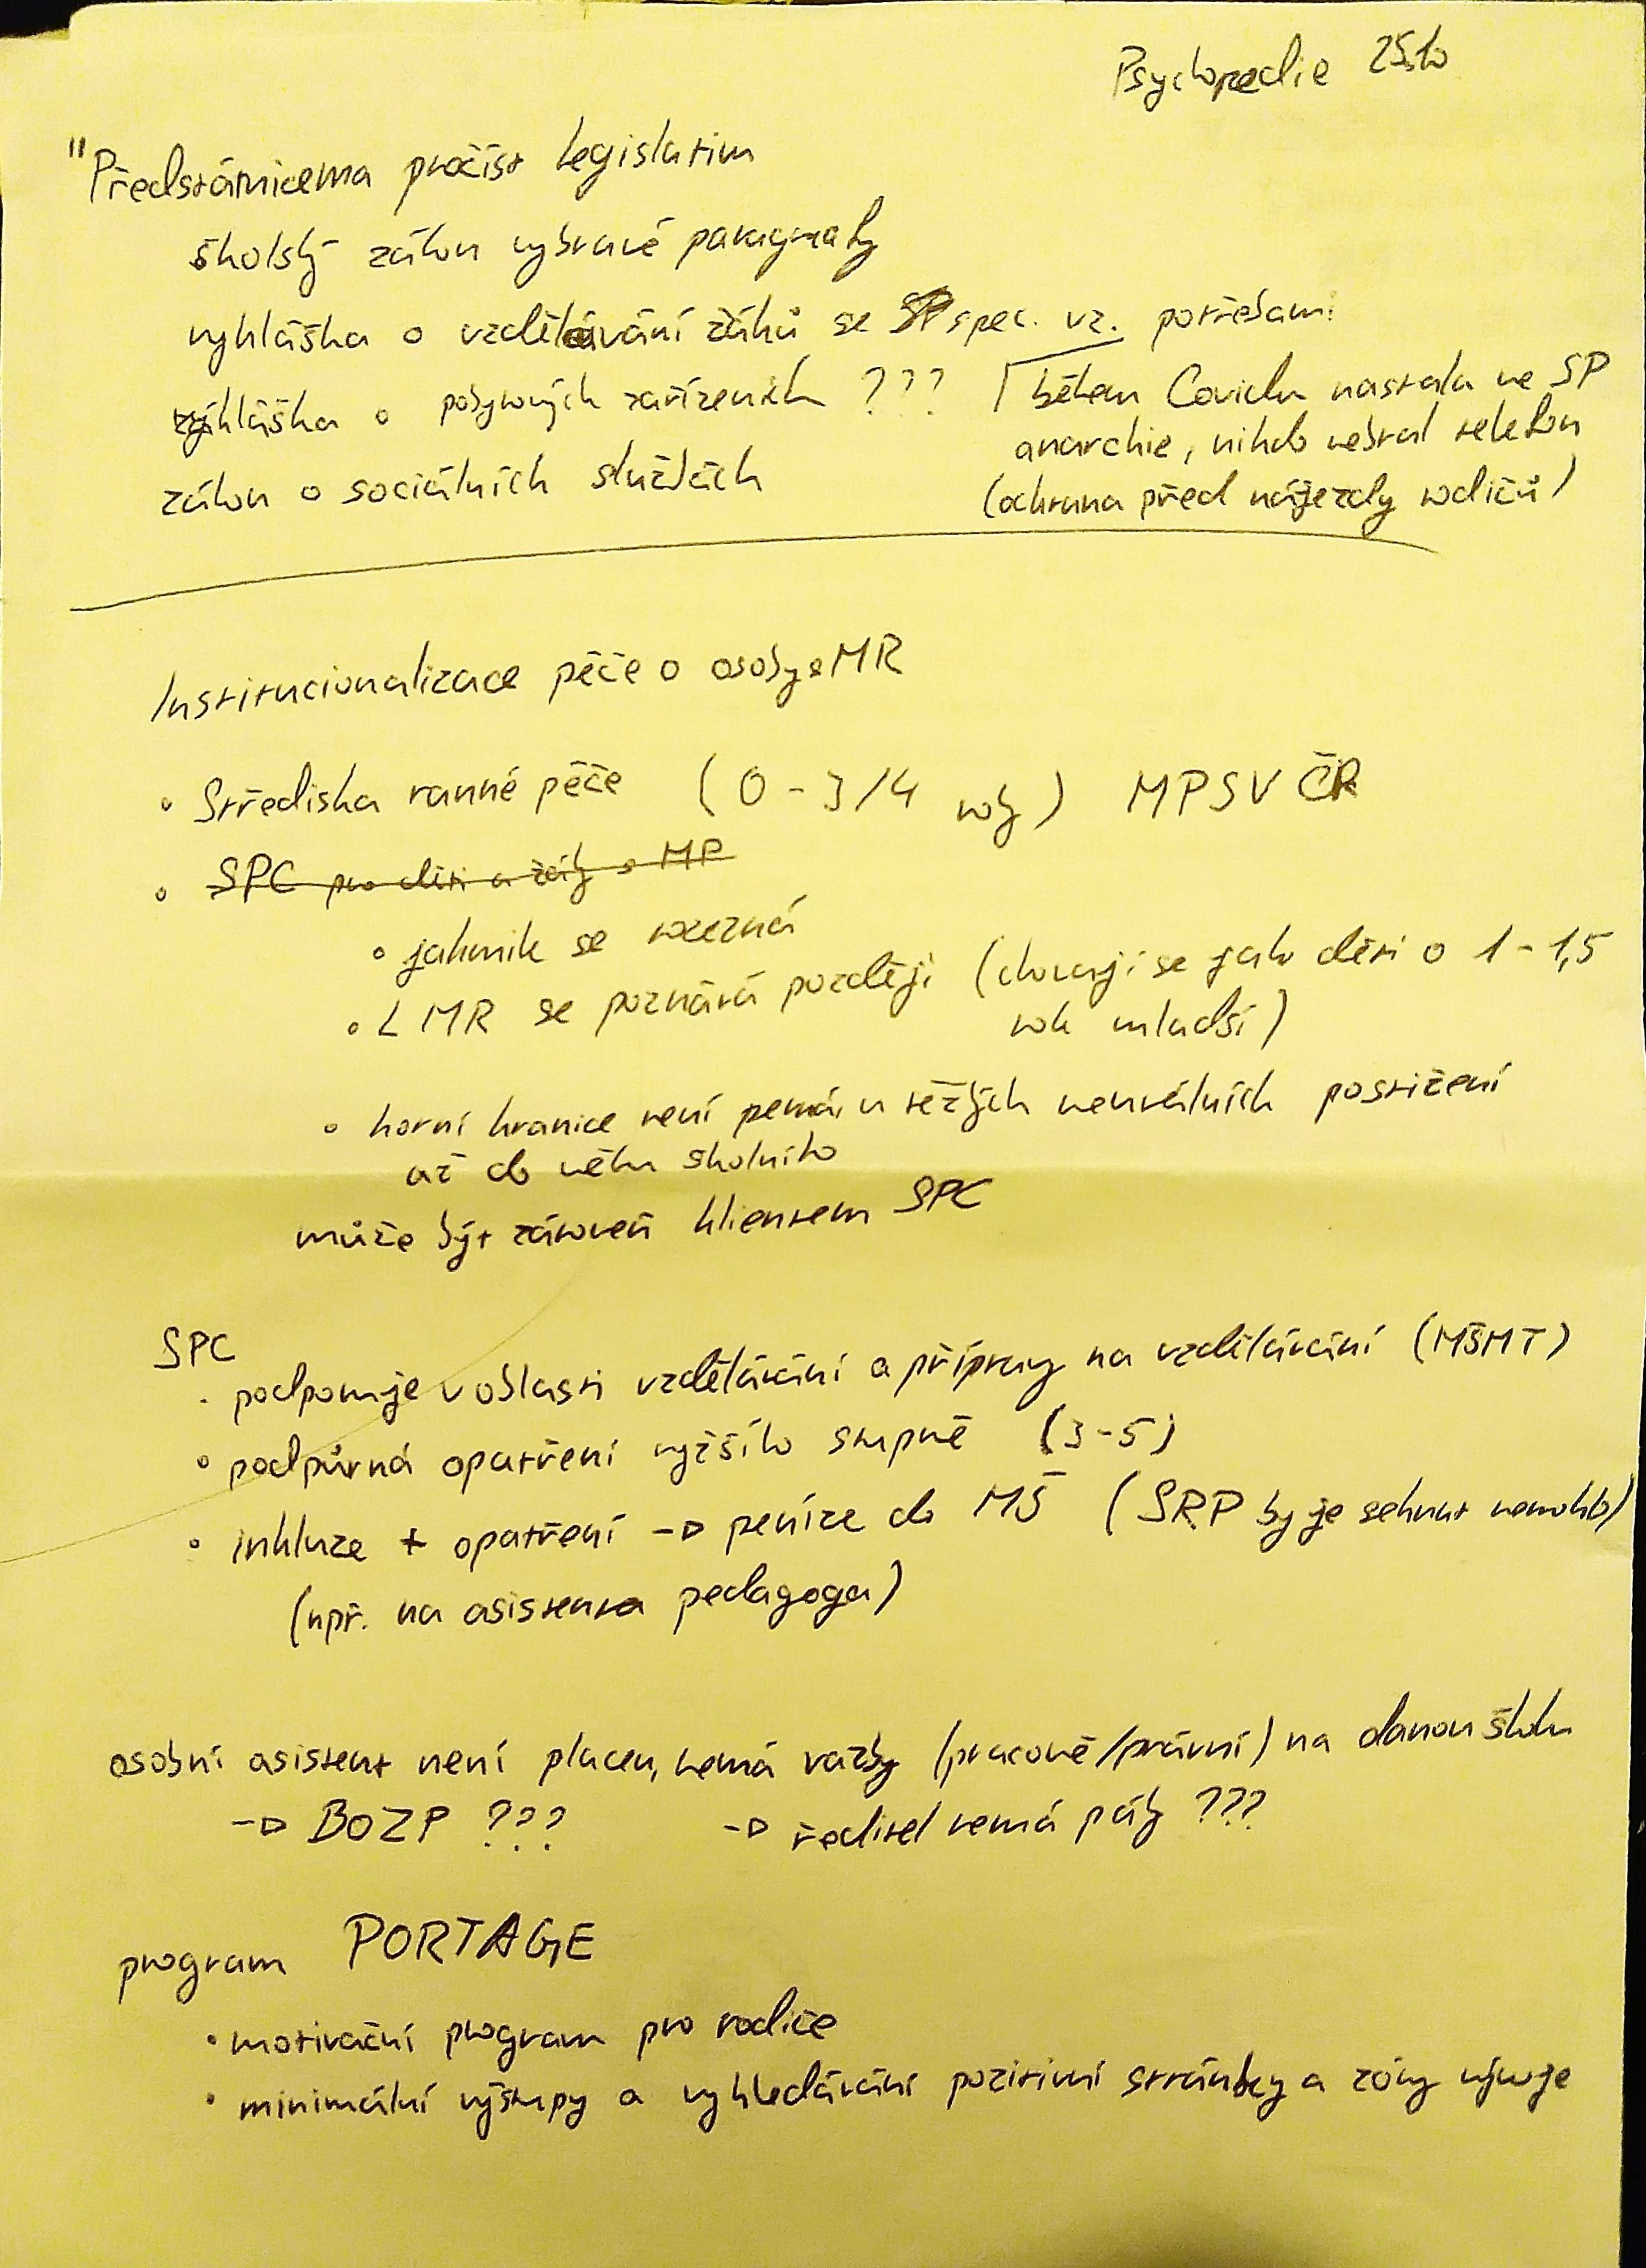 Psychopedie 25.10
"Předstátnicema pročíst legislativu
školský zákon vybrané paragrafy
vyhláška o vzdělávání žáků se spec. vz. potřebami
vyhláška o pobytových zařízeních ???
zákon o sociálních službách
během Covidu nastala ve SP
anarchie, nikdo nebral telefon
(ochrana před nájezdy rodičů)
Institucionalizace péče o osoby s MR
• Střediska ranné péče (0-3/4 roky) MPSV ČR
• SPC pro děti a žáky s MP
• jakmile se rozezná
• LMR se poznává později (chovají se jako děti o 1-1,5
rok mladší)
• horní hranice není pevná, u těžkých neurálních postižení
až do věku školního
může být zároveň klientem SPC
SPC
• podporuje v oblasti vzdělávání a přípravy na vzdělávání (MŠMT)
• podpůrná opatření vyššího stupně (3-5)
• inkluze + opatření → peníze do MŠ (SRP by je sehnat nemohlo)
(např. na asistenta pedagoga)
osobní asistent není placen, nemá vazby (pracovně/právní) na danou školu
→ BOZP ??? → ředitel nemá páky ???
program PORTAGE
• motivační program pro rodiče
• minimální výstupy a vyhledávání pozitivní stránky a zóny vývoje